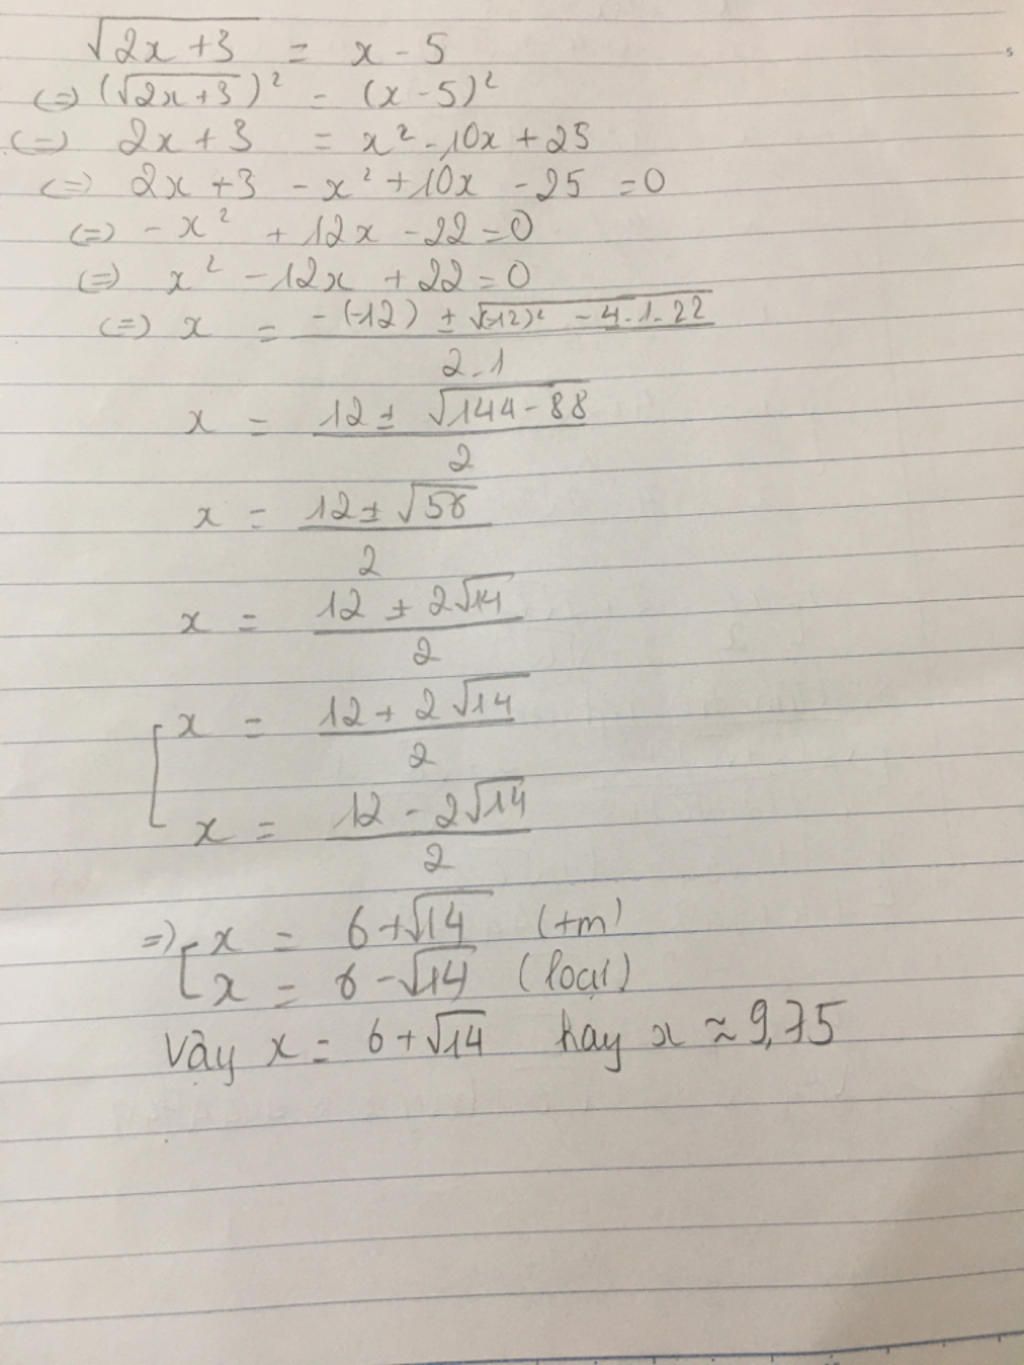 √2x+3 = x - 5
<=> (√2x+3)² = (x - 5)²
<=> 2x + 3 = x² - 10x + 25
<=> 2x + 3 - x² + 10x - 25 = 0
<=> - x² + 12x - 22 = 0
<=> x² - 12x + 22 = 0
<=> x = -(-12) ± √(-12)² - 4.1.22
2.1
x = 12 ± √144 - 88
2
x = 12 ± √56
2
x = 12 ± 2√14
2
x = 12 + 2√14
2
x = 12 - 2√14
2
=> x = 6 + √14 (tm)
x = 6 - √14 (loại)
Vậy x = 6 + √14 hay x ≈ 9,75